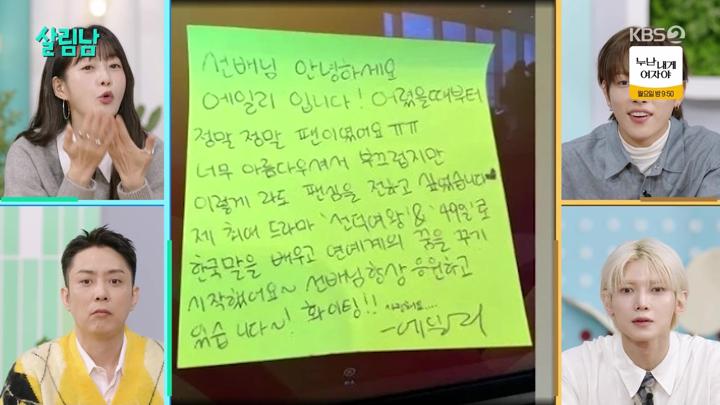 살림남
KBS 2
누난 내게
여자야
월요일 밤 9:50
선배님 안녕하세요
에일리 입니다! 어렸을때부터
정말 정말 팬이였어요 ㅠㅠ
너무 아름다우셔서 부끄럽지만
이렇게 라도 팬심을 전하고 싶었습니다
제 최애 드라마 '선덕여왕' & '49일'로
한국말을 배우고 연예계의 꿈을 꾸기
시작했어요~ 선배님 항상 응원하고
있습니다~! 화이팅!! 사랑해요....
-에일리